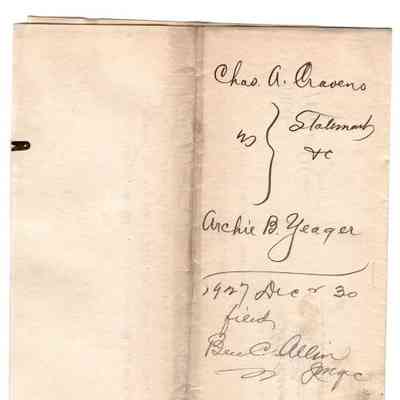 Chas. A. Cravens
vs } Statement
&c
Archie B. Yeager
1927 Dec r 30
filed
Ben C. Allin